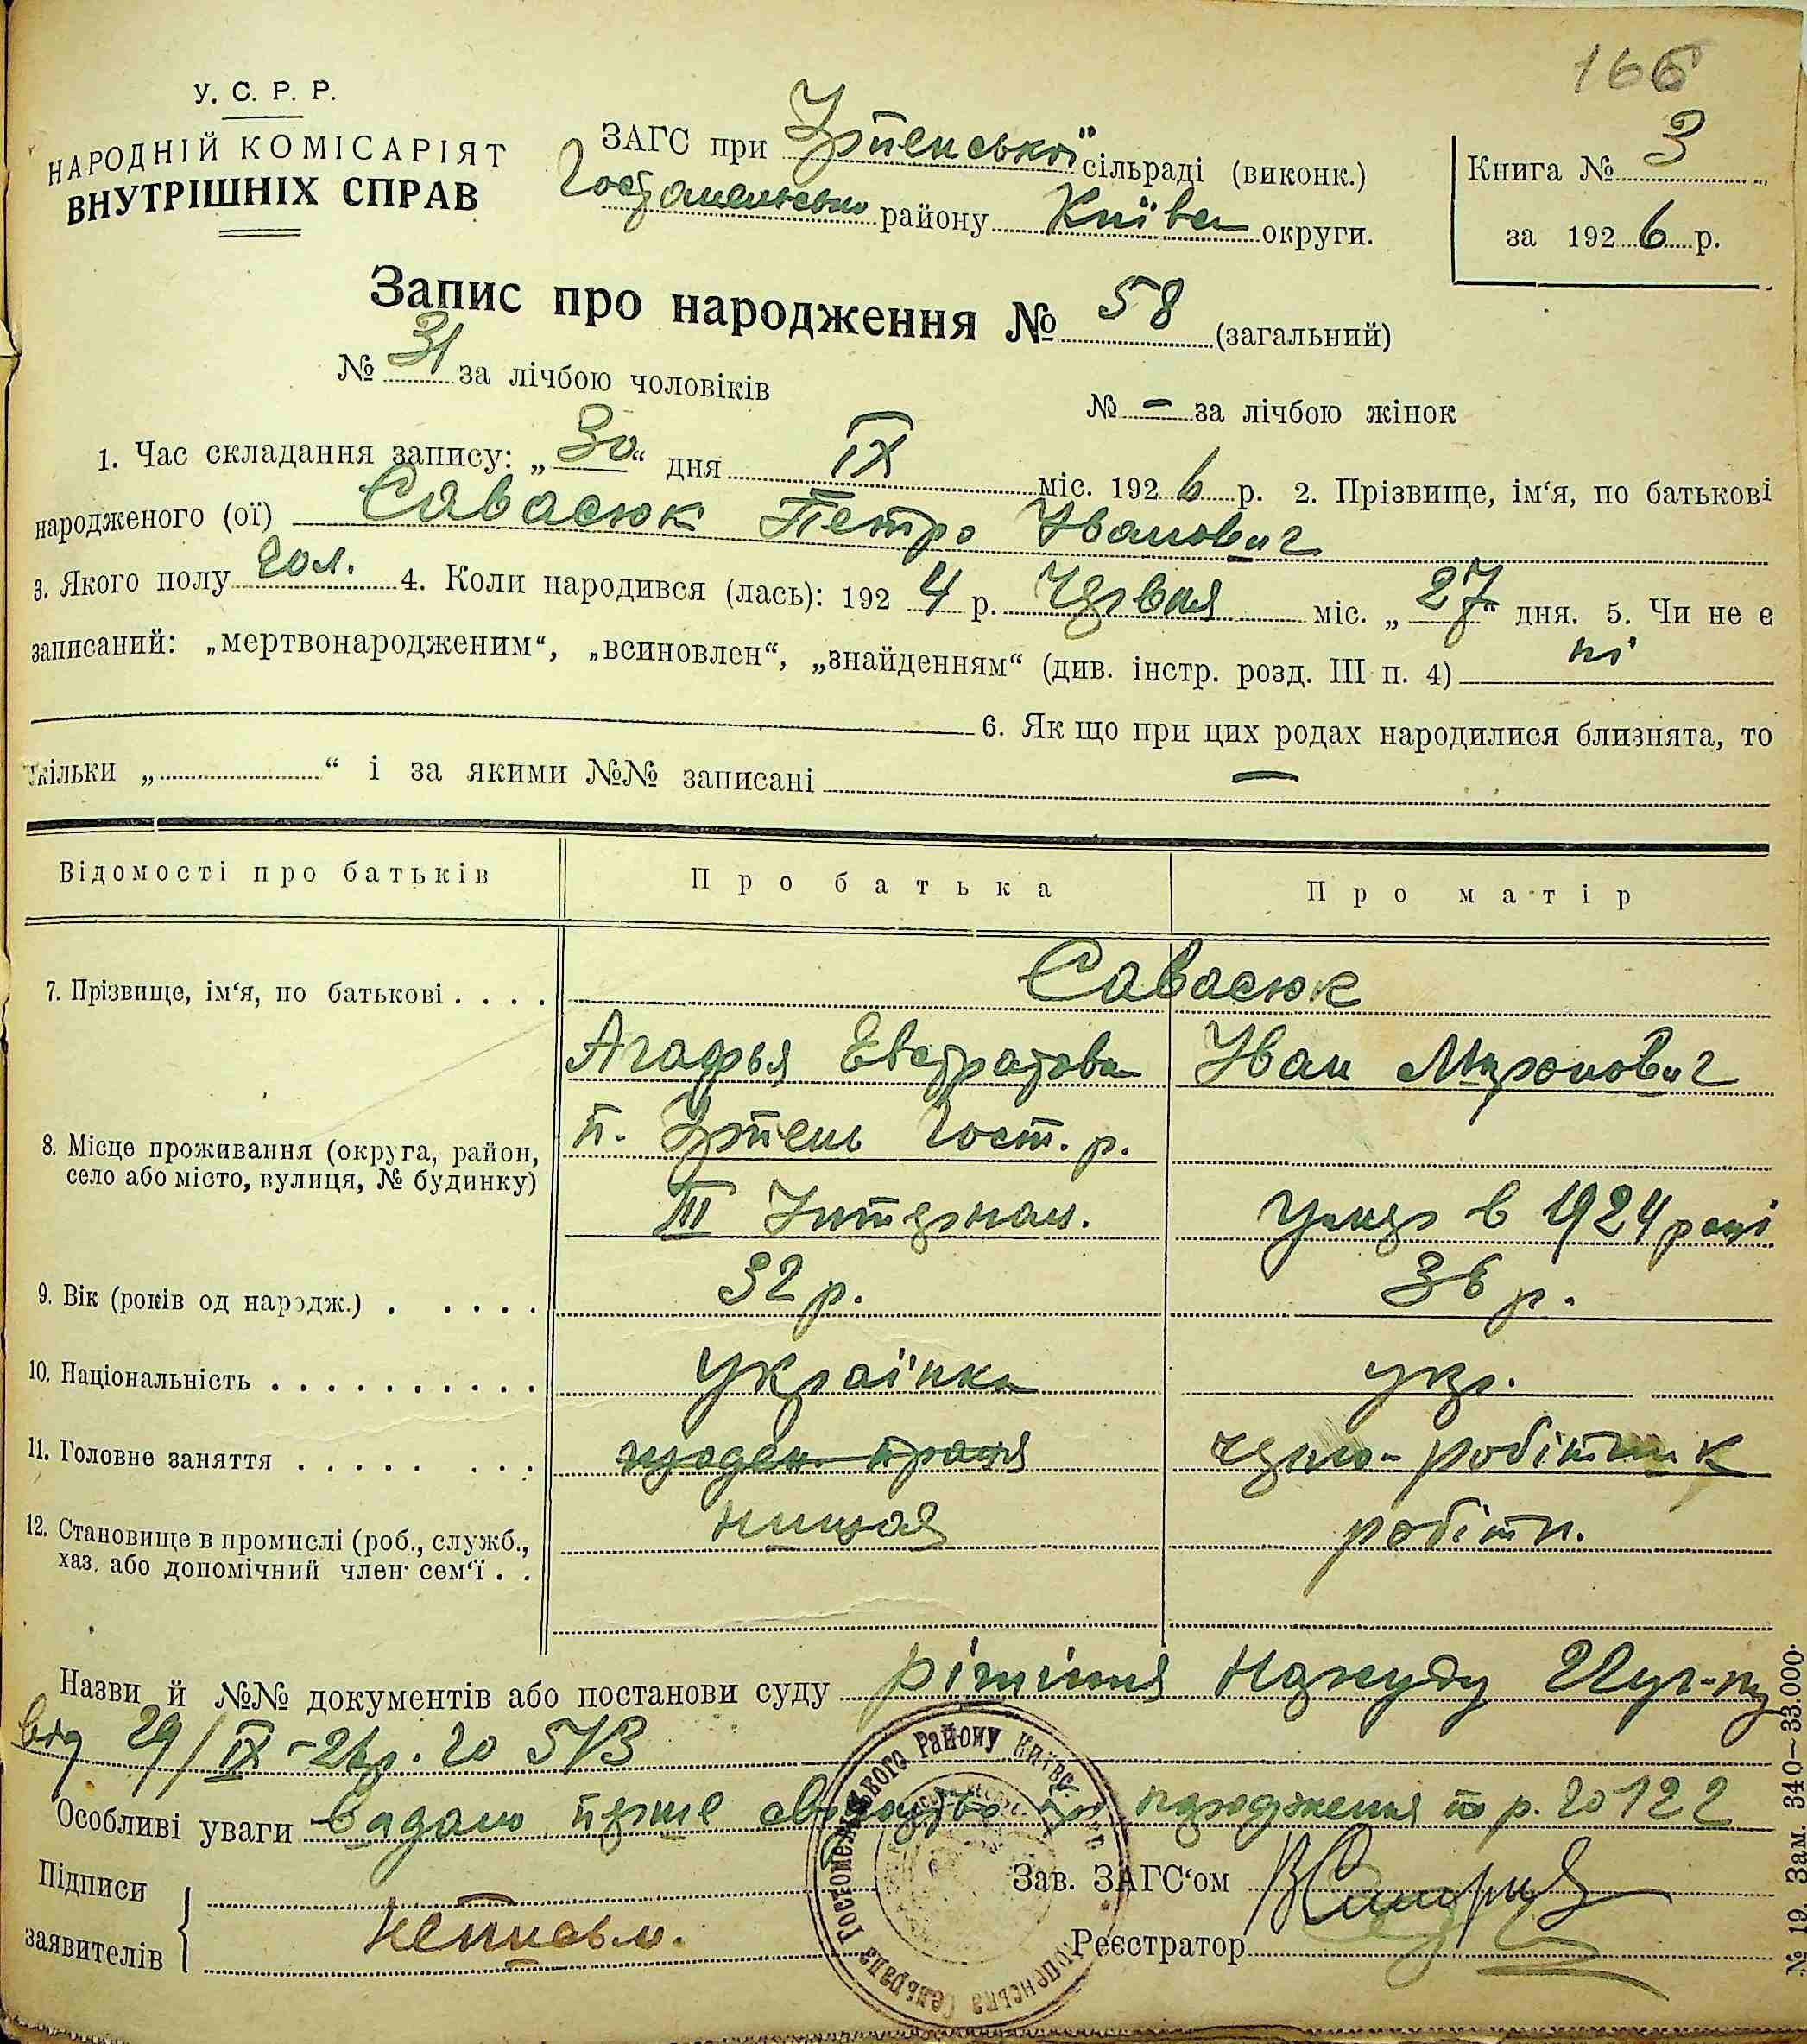 166
У. С. Р. Р.
НАРОДНІЙ КОМІСАРІЯТ
ВНУТРІШНІХ СПРАВ
ЗАГС при Ірпенської сільраді (виконк.)
Гостомельськ району Київськ округи.
Книга № 3
за 1926 р.
Запис про народження № 58 (загальний)
№ 31 за лічбою чоловіків
№ — за лічбою жінок
1. Час складання запису: „30“ дня ІХ міс. 1926 р. 2. Прізвище, ім‘я, по батькові
народженого (ої) Савасюк Петро Іванович
3. Якого полу чол. 4. Коли народився (лась): 1924 р. Червня міс. „27“ дня. 5. Чи не є
записаний: „мертвонародженим“, „всиновлен“, „знайденням“ (див. інстр. розд. III п. 4) ні
6. Як що при цих родах народилися близнята, то
скільки „ “ і за якими №№ записані —
Відомості про батьків Про батька Про матір
7. Прізвище, ім‘я, по батькові . . . . Савасюк
Агафья Евстратова Іван Миронович
8. Місце проживання (округа, район,
село або місто, вулиця, № будинку)
п. Ірпень Гост. р.
III Інтернац. умер в 1924 році
9. Вік (років од народж.) . . . . . 32 р. 36 р.
10. Національність . . . . . . . . . . українка укр.
11. Головне заняття . . . . . . . . поден. праця чорно-робітник
12. Становище в промислі (роб., служб.,
хаз. або допомічний член сем‘ї . .
нищая робітн.
Назви й №№ документів або постанови суду рішіння Нарсуду
від 29/IX-26р. № 573
Особливі уваги Видано перше свідоцтво про народження по р. № 122
Підписи
заявителів
неписьм.
Зав. ЗАГС‘ом
Реєстратор
№ 19. Зам. 340—33.000.